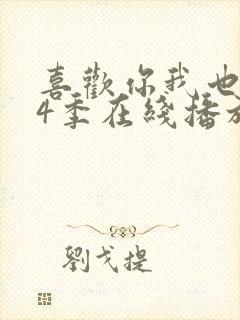 喜歡你我也
4季在綫播放
劉戈提